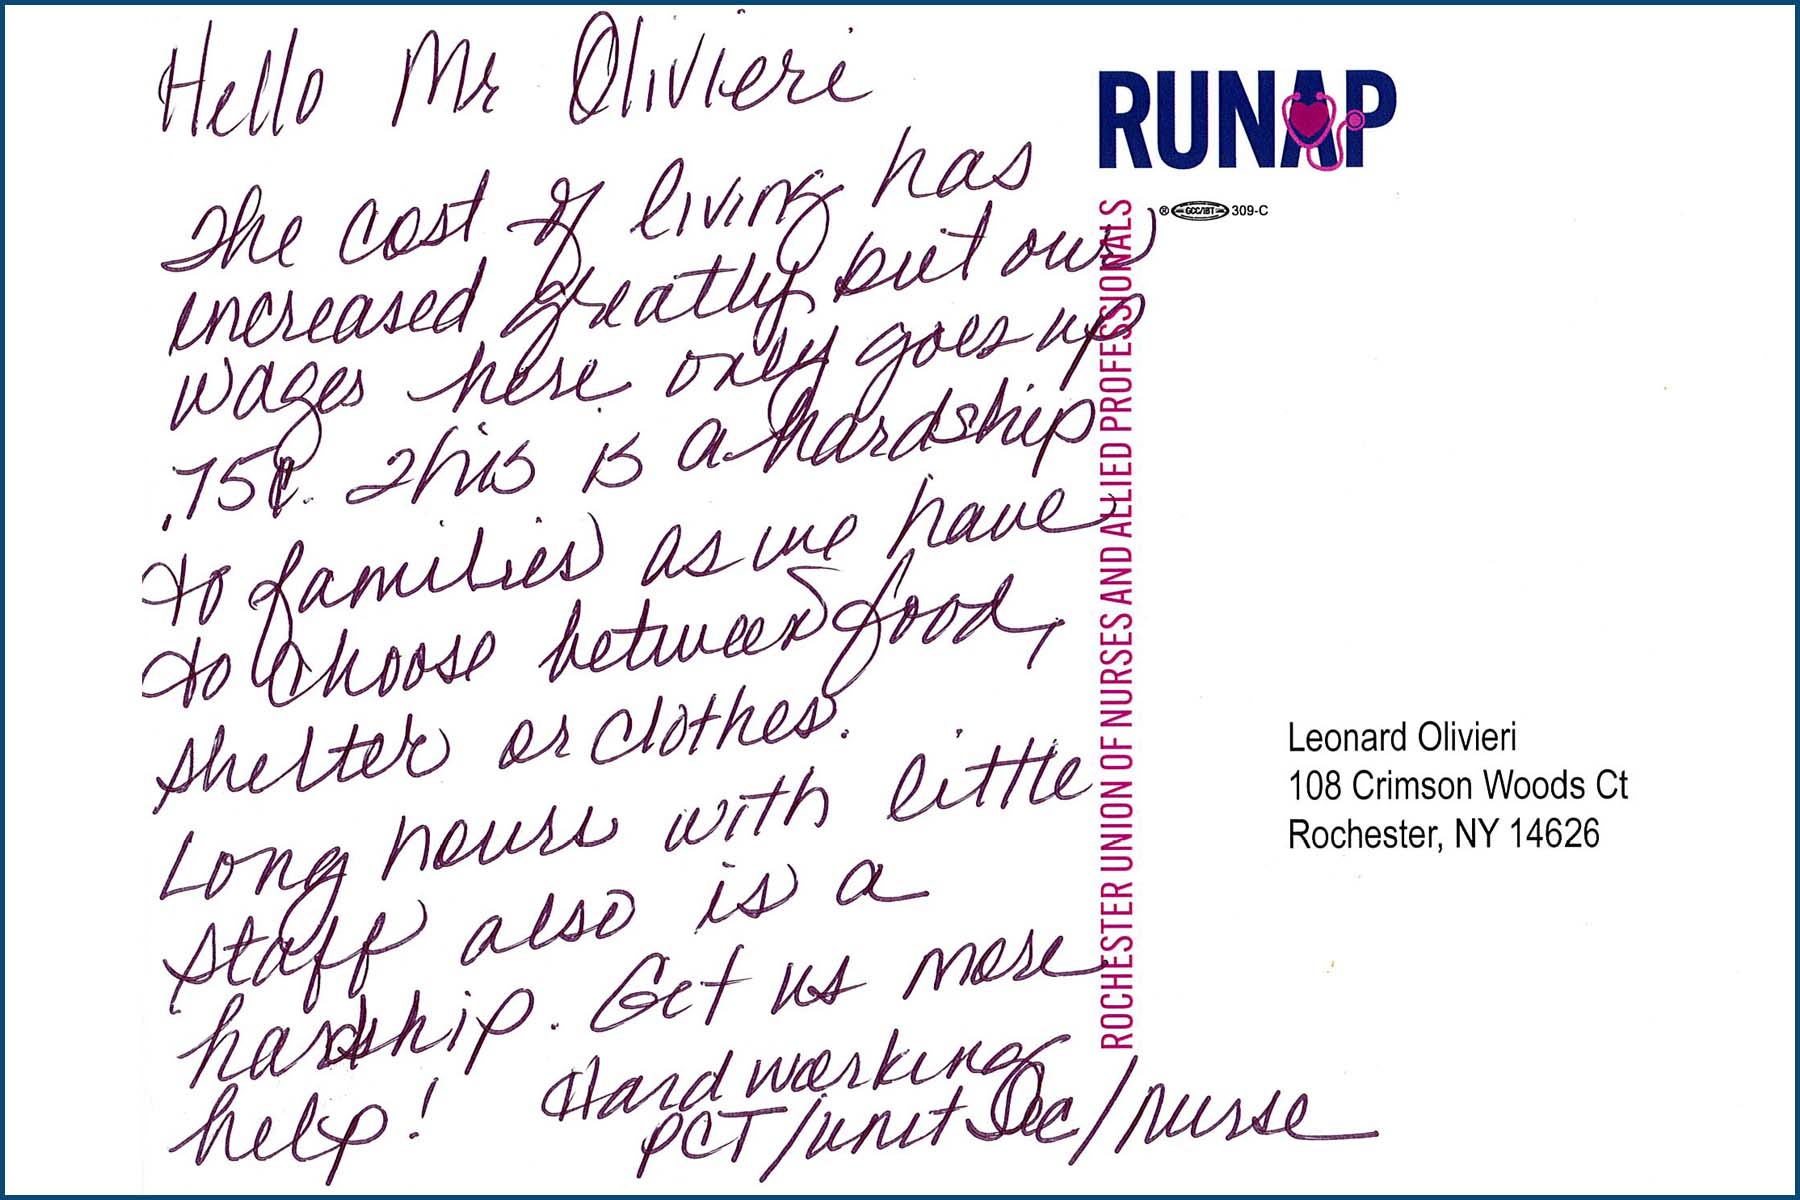 Hello Mr Olivieri
The cost of living has
increased greatly but our
wages here only goes up
.75¢. This is a hardship
to families as we have
to choose between food,
shelter or clothes.
Long hours with little
staff also is a
hardship. Get us more
help!
Hard working
PCT/unit Sec/nurse
RUNAP
® GCC/IBT 309-C
ROCHESTER UNION OF NURSES AND ALLIED PROFESSIONALS
Leonard Olivieri
108 Crimson Woods Ct
Rochester, NY 14626